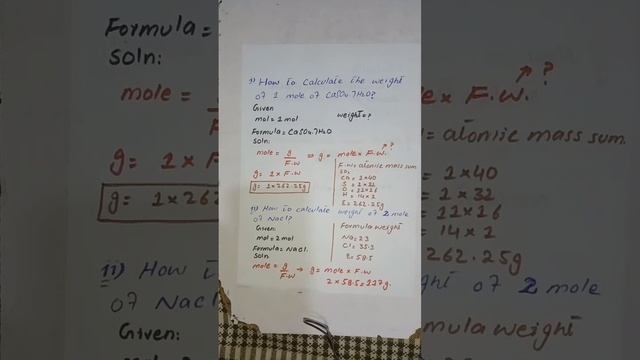 i) How to calculate the weight
of 1 mole of CaSO4.7H2O?
Given
mol = 1 mol
weight = ?
Formula = CaSO4.7H2O
Soln:
mole = g / F.W ⇒ g = mole x F.W. ?
g = 1 x F.W
g = 1 x 262.25g
F.W = atomic mass sum
So,
Ca = 1x40
S = 1x32
O = 11x16
H = 14x1
Σ = 262.25g
ii) How to calculate weight of 2 mole
of NaCl?
Given:
mol = 2 mol
Formula = NaCl.
Soln
Formula weight
Na = 23
Cl = 35.5
Σ = 58.5
mole = g / F.W → g = mole x F.W
2 x 58.5 = 117g.
Formula =
Soln:
mole =
g = 1 x
g = 1x26
ii) How t
of Nacl
Given:
?
ole x F.W.
= atomic mass sum.
1 x 40
1 x 32
11x16
14x1
262.25g
ght of 2 mole
mula weight